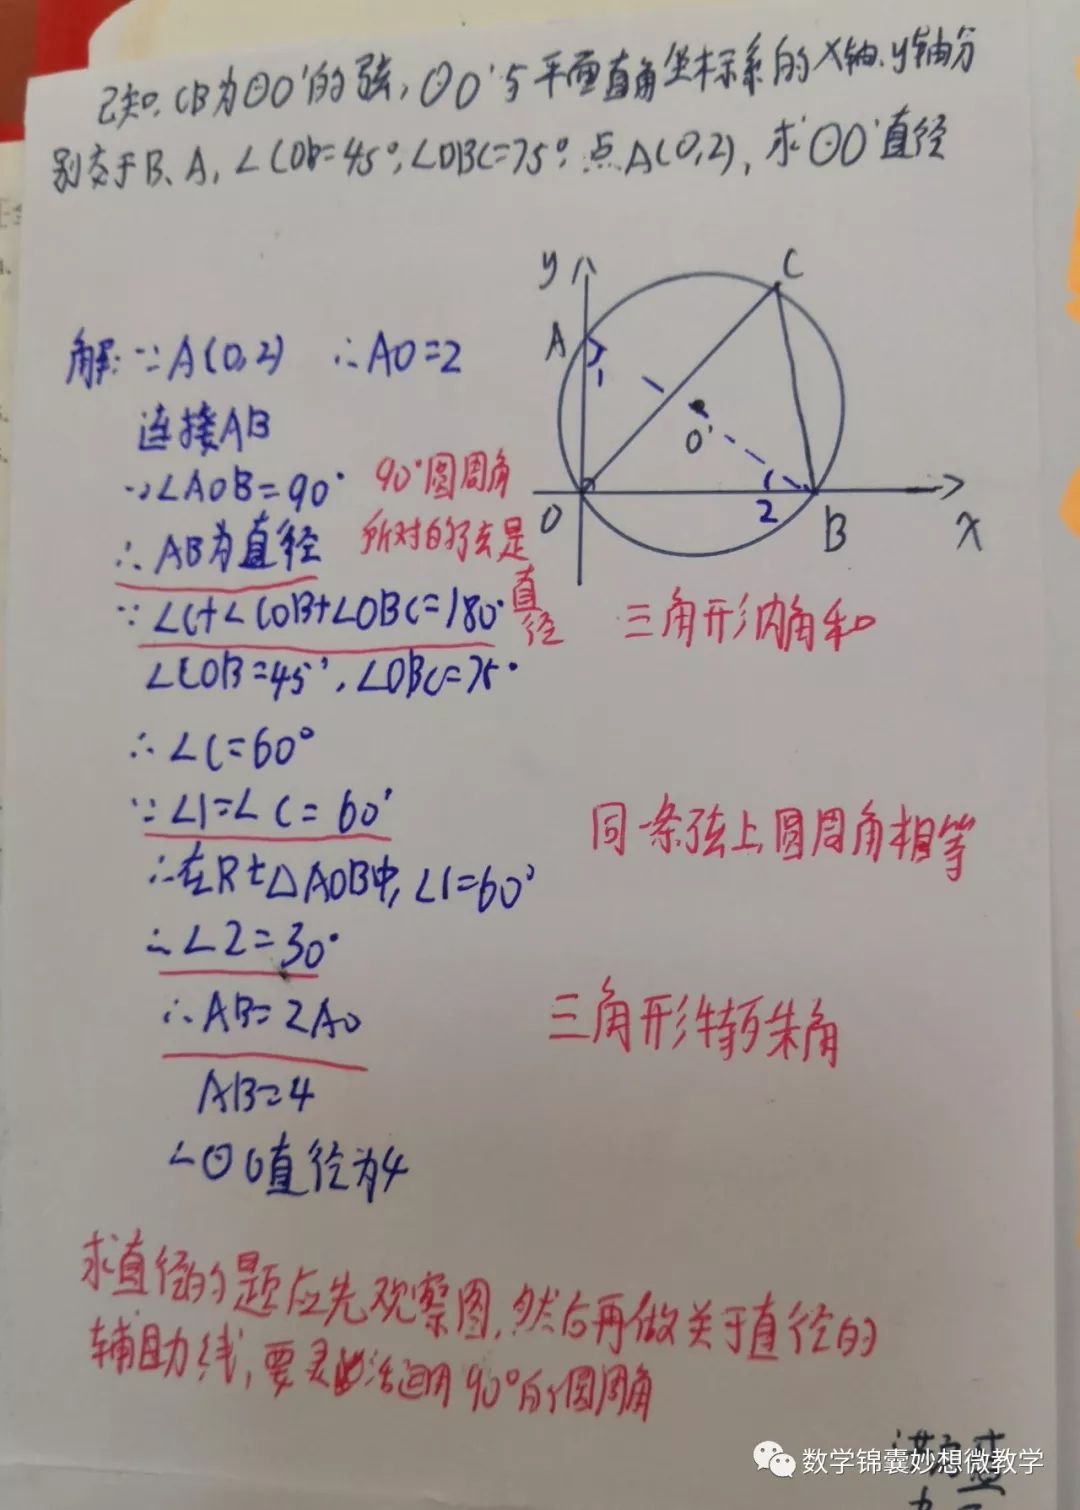 已知,CB为⊙O'的弦,⊙O'与平面直角坐标系的X轴、y轴分
别交于B、A,∠COB=45°,∠OBC=75°,点A(0,2),求⊙O'直径
y
C
A
1
O'
O
2
B
X
解:∵A(0,2) ∴AO=2
连接AB
∵∠AOB=90°
90°圆周角
所对的弦是
直径
∴AB为直径
∵∠C+∠COB+∠OBC=180°
三角形内角和
∠COB=45°,∠OBC=75°
∴∠C=60°
∵∠1=∠C=60°
同一条弦上圆周角相等
∴在Rt△AOB中,∠1=60°
∴∠2=30°
∴AB=2AO
三角形特殊角
AB=4
∴⊙O直径为4
求直径的题应先观察图,然后再做关于直径的
辅助线,要灵活运用90°的圆周角
数学锦囊妙想微教学